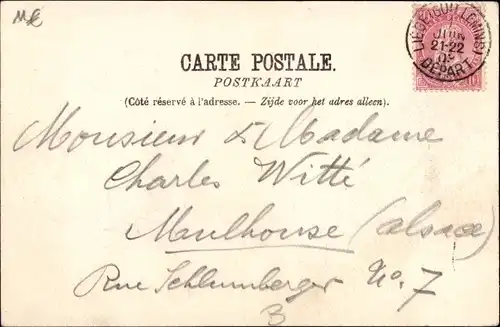 CARTE POSTALE.
POSTKAART
(Côté réservé à l'adresse. — Zijde voor het adres alleen).
LIEGE (GUILLEMINS)
JUIN
21-22
DEPART
Monsieur & Madame
Charles Witté
Mulhouse (Alsace)
Rue Schlumberger No. 7
3